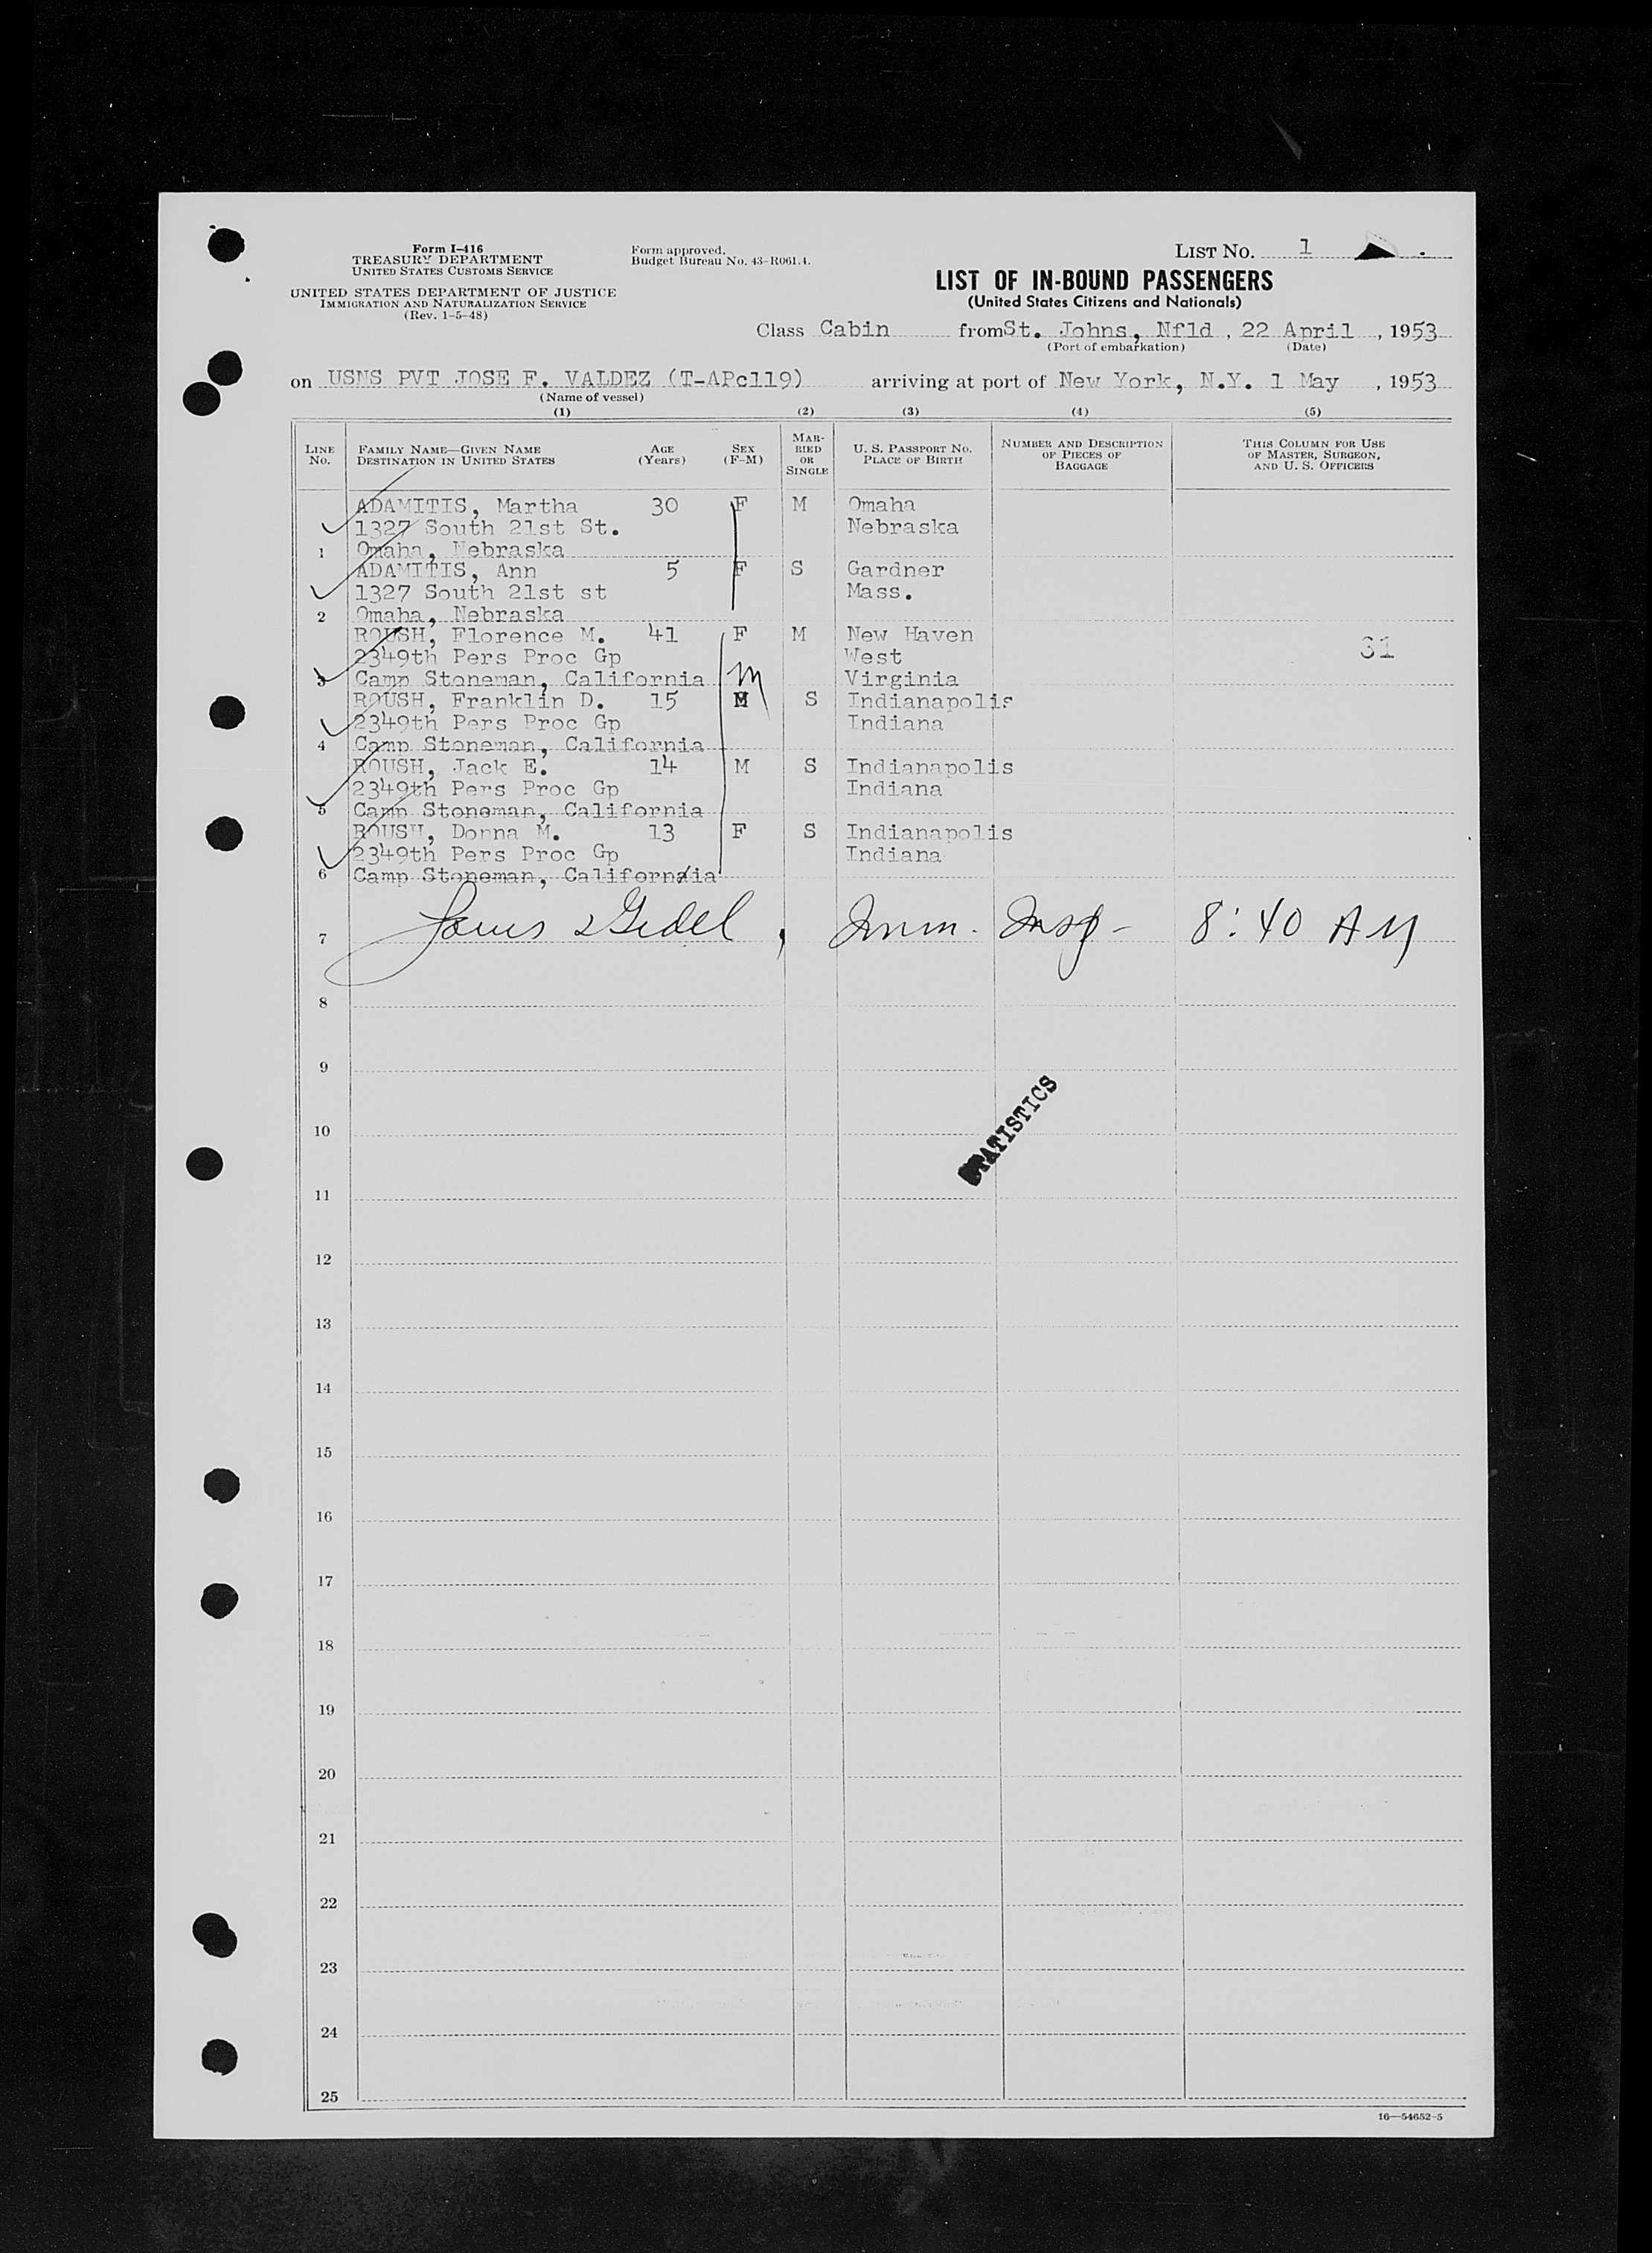 Form I-416
TREASURY DEPARTMENT
UNITED STATES CUSTOMS SERVICE
UNITED STATES DEPARTMENT OF JUSTICE
IMMIGRATION AND NATURALIZATION SERVICE
(Rev. 1-5-48)
Form approved.
Budget Bureau No. 43-R061.4.
LIST NO. 1
LIST OF IN-BOUND PASSENGERS
(United States Citizens and Nationals)
Class Cabin from St. Johns, Nfld , 22 April , 1953
(Port of embarkation) (Date)
on USNS PVT JOSE F. VALDEZ (T-APc119) arriving at port of New York, N.Y. 1 May , 1953
(Name of vessel)
(1) (2) (3) (4) (5)
LINE NO.
FAMILY NAME—GIVEN NAME
DESTINATION IN UNITED STATES
AGE (Years)
SEX (F-M)
MARRIED OR SINGLE
U. S. PASSPORT NO.
PLACE OF BIRTH
NUMBER AND DESCRIPTION OF PIECES OF BAGGAGE
THIS COLUMN FOR USE OF MASTER, SURGEON, AND U. S. OFFICERS
ADAMITIS, Martha 30 F M Omaha
1327 South 21st St. Nebraska
1 Omaha, Nebraska
ADAMITIS, Ann 5 F S Gardner
1327 South 21st st Mass.
2 Omaha, Nebraska
ROUSH, Florence M. 41 F M New Haven
2349th Pers Proc Gp West 31
3 Camp Stoneman, California m Virginia
ROUSH, Franklin D. 15 M S Indianapolis
2349th Pers Proc Gp Indiana
4 Camp Stoneman, California
ROUSH, Jack E. 14 M S Indianapolis
2349th Pers Proc Gp Indiana
5 Camp Stoneman, California
ROUSH, Donna M. 13 F S Indianapolis
2349th Pers Proc Gp Indiana
6 Camp Stoneman, California
7 Imm. Insp - 8:40 AM
8
9
10
STATISTICS
11
12
13
14
15
16
17
18
19
20
21
22
23
24
25
16—54652-5